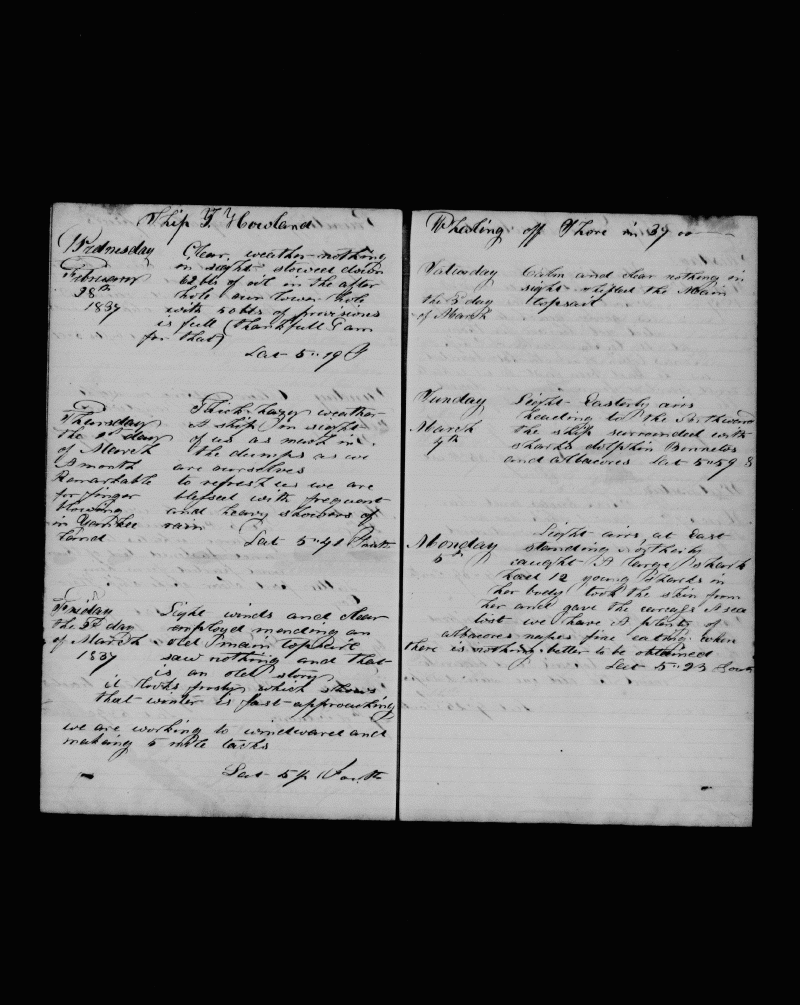 Ship T Howland
Wednesday
Febrisary
28th
1837
Clear weather nothing
in sight stowed down
62 bbs of oil in the after
hole our lower hole
with 50 bbs of provisions
is full (thankfull I am
for that)
Lat 5" 19 S
Thursday
the 1st day
of March
A month
Remarkable
for finger
blowing
in Yankee
Land
Thick hazy weather
A ship in sight
of us as much in
the dumps as we
are ourselves
to refresh us we are
blessed with frequent
and heavy showers of
rain
Lat 5" 41 South
Friday
the 2d day
of March
1837
Light winds and clear
employd mending an
old main topsail
saw nothing and that
is an old story
it looks frosty which shows
that winter is fast approaching
we are working to windward and
making 5 mile tacks
Lat 5 South
Whaling off Shore in 37
Saturday
the 3d day
of March
Calm and clear nothing in
sight shifted the Main
topsail
Sunday
March
4th
Light Easterly airs
heading to the Northward
the ship surrounded with
sharks dolphin Bonnetas
and albacores Lat 5" 59 S
Monday
5th
Light airs at East
standing northerly
caught A large shark
had 12 young sharks in
her body took the skin from
her and gave the carcass A sea
toss we have A plenty of
albacores napes fine eating when
there is nothing better to be obtained
Lat 5" 23 South